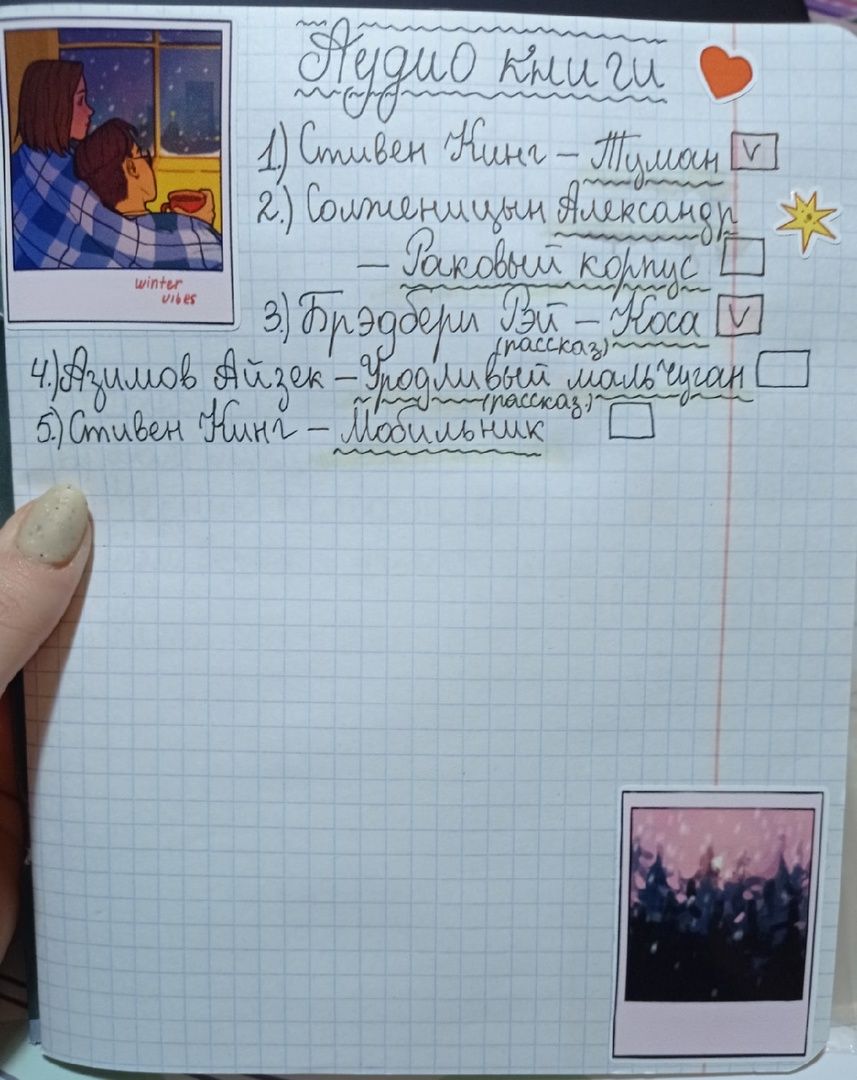 Аудио книги
1.) Стивен Кинг – Туман V
2.) Солженицын Александр
– Раковый корпус
winter
vibes
3.) Брэдбери Рэй – Коса V
(рассказ)
4.) Азимов Айзек – Уродливый мальчуган
(рассказ)
5.) Стивен Кинг – Мобильник